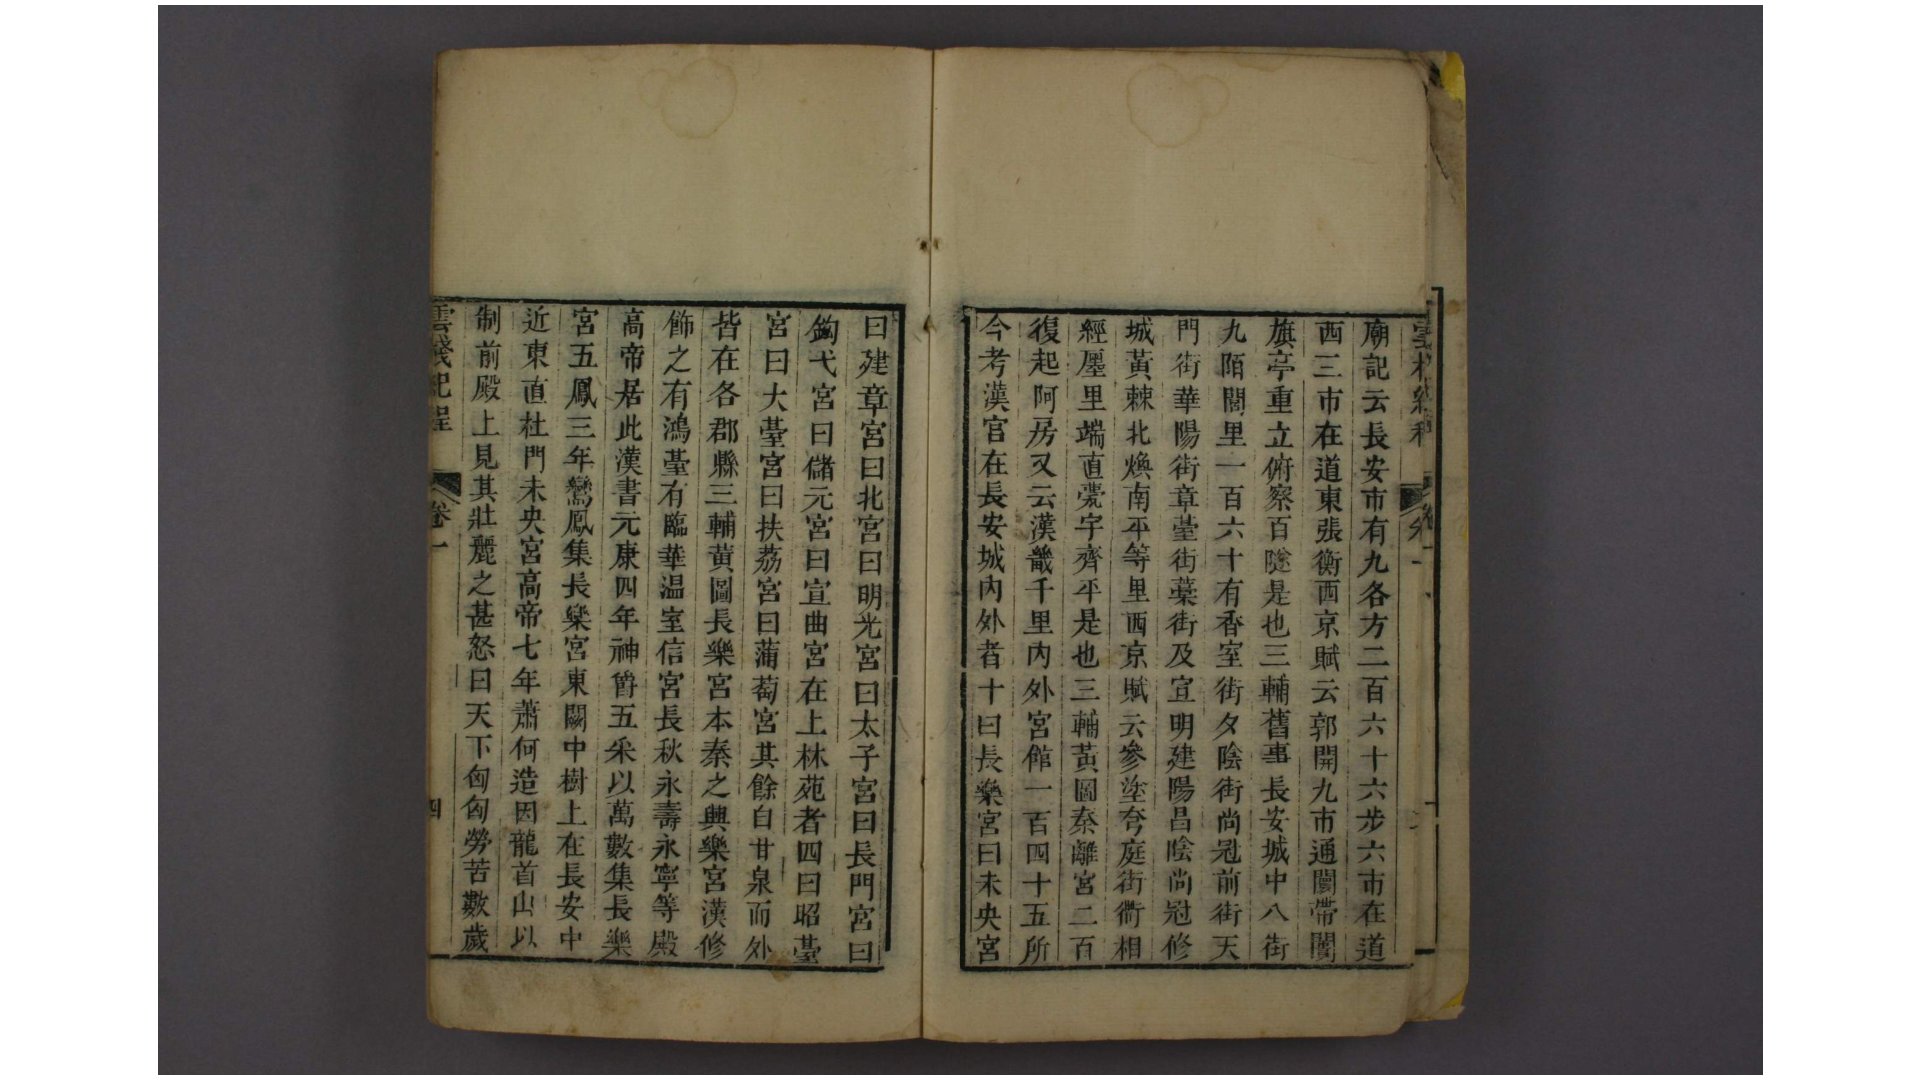 廟記云長安市有九各方二百六十六步六市在道
西三市在道東張衡西京賦云郭開九市通闤帶闠
旗亭重立俯察百隧是也三輔舊事長安城中八街
九陌閭里一百六十有香室街夕陰街尚冠前街天
門街華陽街章臺街藁街及宣明建陽昌陰尚冠修
城黃棘北煥南平等里西京賦云參塗夸庭街衢相
經廛里端直甍宇齊平是也三輔黃圖秦離宮二百
復起阿房又云漢畿千里內外宮館一百四十五所
今考漢宮在長安城內外者十曰長樂宮曰未央宮
曰建章宮曰北宮曰明光宮曰太子宮曰長門宮曰
鉤弋宮曰儲元宮曰宣曲宮在上林苑者四曰昭臺
宮曰大臺宮曰扶荔宮曰蒲萄宮其餘自甘泉而外
皆在各郡縣三輔黃圖長樂宮本秦之興樂宮漢修
飾之有鴻臺有臨華溫室信宮長秋永壽永寧等殿
高帝居此漢書元康四年神爵五采以萬數集長樂
宮五鳳三年鸞鳳集長樂宮東闕中樹上在長安中
近東直杜門未央宮高帝七年蕭何造因龍首山以
制前殿上見其壯麗之甚怒曰天下匈匈勞苦數歲
雲棧紀程 卷一 四